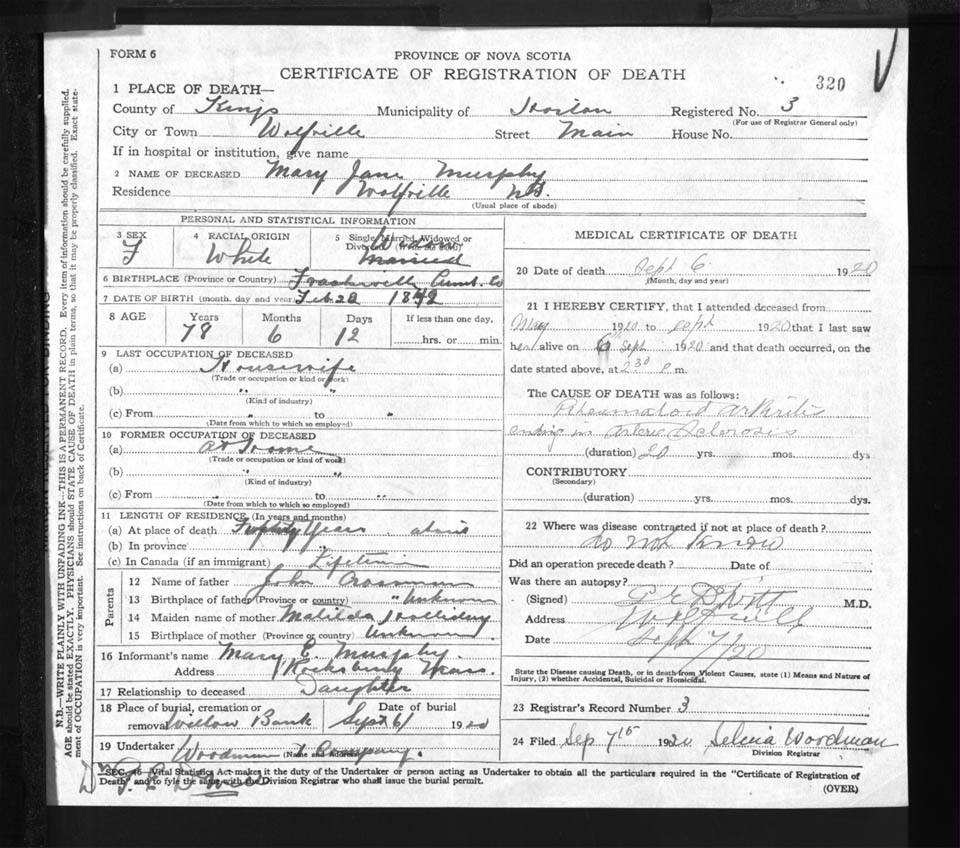 FORM 6
PROVINCE OF NOVA SCOTIA
CERTIFICATE OF REGISTRATION OF DEATH
320
1 PLACE OF DEATH—
County of Kings Municipality of Horton Registered No. 3
(For use of Registrar General only)
City or Town Wolfville Street Main House No.
If in hospital or institution, give name
2 NAME OF DECEASED Mary Jane Murphy
Residence Wolfville N.S.
(Usual place of abode)
PERSONAL AND STATISTICAL INFORMATION
3 SEX F
4 RACIAL ORIGIN White
5 Single, Married, Widowed or Divorced (Write the word) Widow Married
6 BIRTHPLACE (Province or Country)
7 DATE OF BIRTH (month, day and year) Feb 22 1842
8 AGE Years 78 Months 6 Days 12 If less than one day, hrs. or min.
9 LAST OCCUPATION OF DECEASED
(a) Housewife
(Trade or occupation or kind of work)
(b) " "
(Kind of industry)
(c) From " to "
(Date from which to which so employed)
10 FORMER OCCUPATION OF DECEASED
(a) at home
(Trade or occupation or kind of work)
(b) "
(Kind of industry)
(c) From " to "
(Date from which to which so employed)
11 LENGTH OF RESIDENCE (In years and months)
(a) At place of death Years
(b) In province
(c) In Canada (if an immigrant) Lifetime
Parents
12 Name of father John Crossman
13 Birthplace of father (Province or country) " Unknown
14 Maiden name of mother Matilda
15 Birthplace of mother (Province or country) Unknown
16 Informant's name Mary E. Murphy
Address Rocksbury Mass.
17 Relationship to deceased Daughter
18 Place of burial, cremation or removal Willow Bank Date of burial Sept 6/ 1920
19 Undertaker Woodman & Company
(Name and Address)
MEDICAL CERTIFICATE OF DEATH
20 Date of death Sept 6 1920
(Month, day and year)
21 I HEREBY CERTIFY, that I attended deceased from
May 1920 to Sept 1920 that I last saw
her alive on 6 Sept 1920 and that death occurred, on the
date stated above, at 2 30 P.m.
The CAUSE OF DEATH was as follows:
Rheumatoid arthritis
ending in Arterio Sclerosis
(duration) 20 yrs. mos. dys
CONTRIBUTORY
(Secondary)
(duration) yrs. mos. dys.
22 Where was disease contracted if not at place of death?
do not know
Did an operation precede death? Date of
Was there an autopsy?
(Signed) G E DeWitt M.D.
Address Wolfville
Date Sept 7/20
State the Disease causing Death, or in death from Violent Causes, state (1) Means and Nature of
Injury, (2) whether Accidental, Suicidal or Homicidal.
23 Registrar's Record Number 3
24 Filed Sep 7th 1920 Selena Woodman
Division Registrar
SEC. 46 Vital Statistics Act makes it the duty of the Undertaker or person acting as Undertaker to obtain all the particulars required in the "Certificate of Registration of
Death" and to fyle the same with the Division Registrar who shall issue the burial permit.
(OVER)
N.B.—WRITE PLAINLY WITH UNFADING INK—THIS IS A PERMANENT RECORD. Every item of information should be carefully supplied.
AGE should be stated EXACTLY. PHYSICIANS should STATE CAUSE OF DEATH in plain terms, so that it may be properly classified. Exact statement
of OCCUPATION is very important. See instructions on back of Certificate.